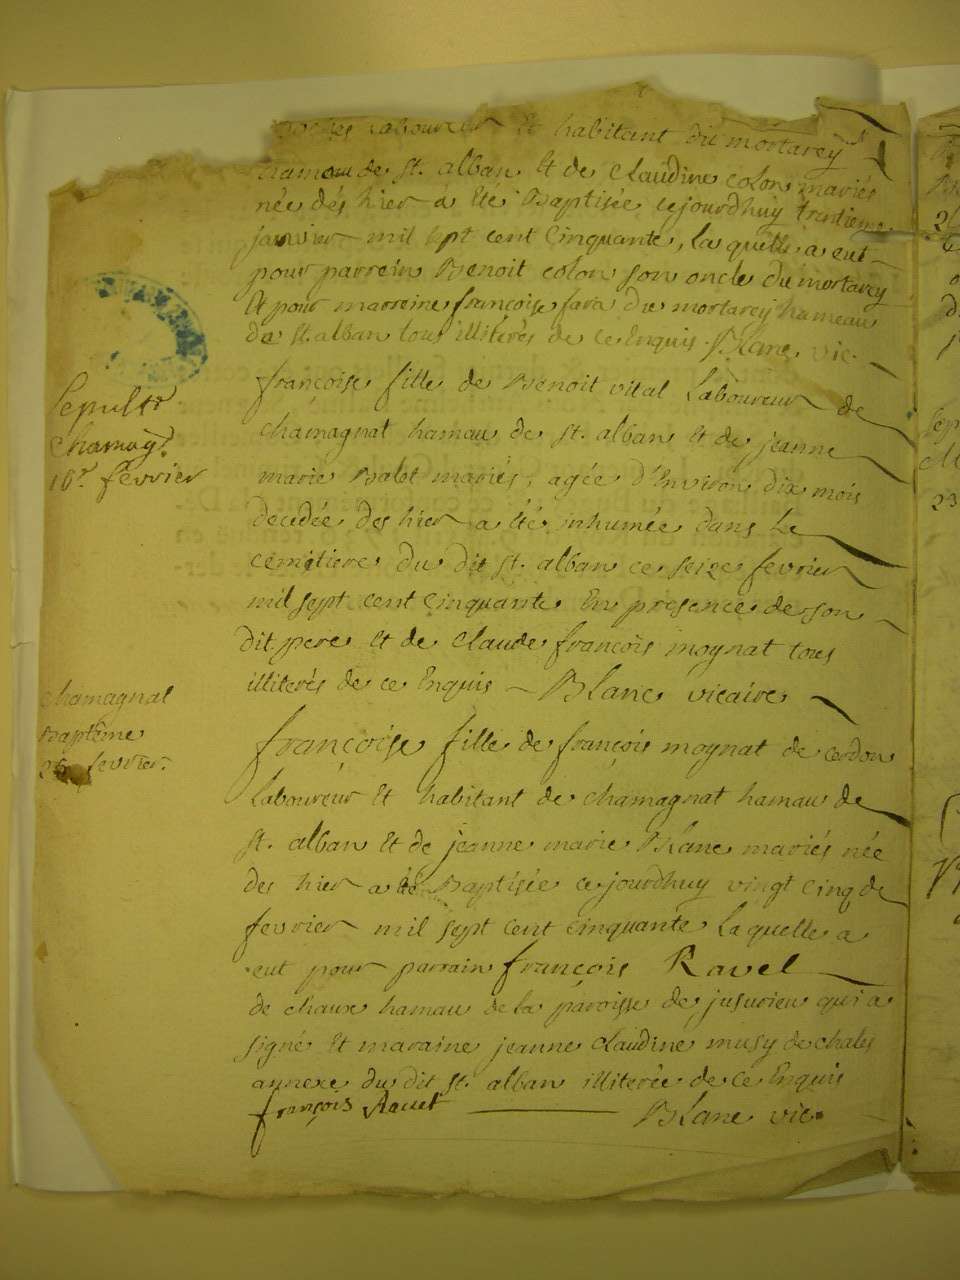 laboureur et habitant du mortarey
hameau de st. alban et de Claudine colon mariés
née dés hier a été Baptisée cejourdhuy trentieme
janvier mil sept cent Cinquante, la quelle a eut
pour parrein Benoit colon son oncle du mortarey
et pour marreine françoise fara du mortarey hameau
de st. alban tous illiterés de ce Enquis. Blanc vic.
Sepultr
Chamag.
16r. fevrier
françoise fille de Benoit vital Laboureur de
chamagnat hamau de st. alban et de jeanne
marie Balet mariés, agée d'Environ dix mois
decedée des hier a été inhumée dans Le
cemitiere du dit st. alban ce seize fevrier
mil sept cent Cinquante En presence de son
dit pere et de Claude françois moynat tous
illiterés de ce Enquis Blanc vicaire
chamagnat
Baptême
fevrier.
françoise fille de françois moynat de cerdon
Laboureur et habitant de chamagnat hamau de
st. alban et de jeanne marie Blanc mariés née
des hier a été Baptisée ce jourdhuy vingt cinq de
fevrier mil sept cent cinquante La quelle a
eut pour parrain françois Ravet
de chaux hamau de la paroisse de jusurieu qui a
signé et maraine jeanne claudine musy de chales
annexe du dit st. alban illiterée de ce Enquis
françois Ravet Blanc vic.